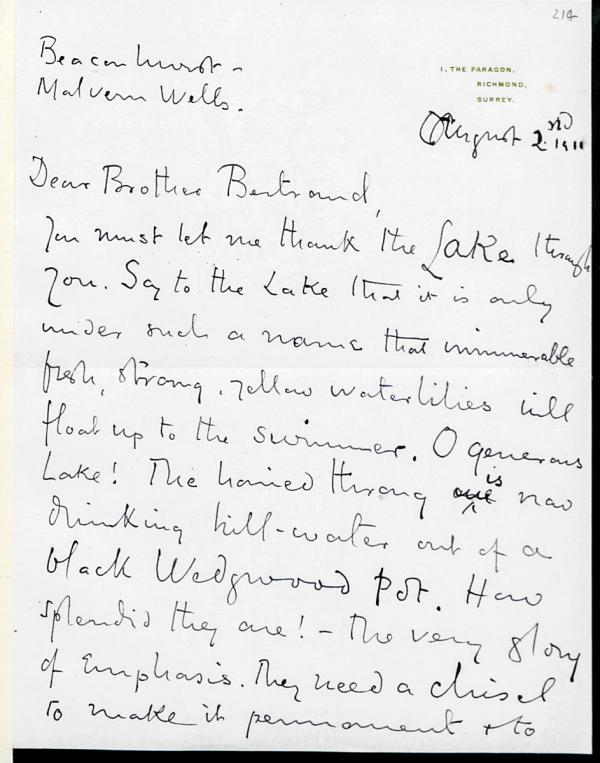 214
Beaconhurst -
Malvern Wells.
1, THE PARAGON,
RICHMOND,
SURREY.
August 2nd 1911
Dear Brother Bertrand,
You must let me thank the Lake through
you. Say to the Lake that it is only
under such a name that innumerable
fresh, strong, yellow waterlilies will
float up to the swimmer. O generous
Lake! The throng is now
drinking hill-water out of a
black Wedgwood Pot. How
splendid they are! - The very glory
of Emphasis. They need a chisel
to make it permanent & to